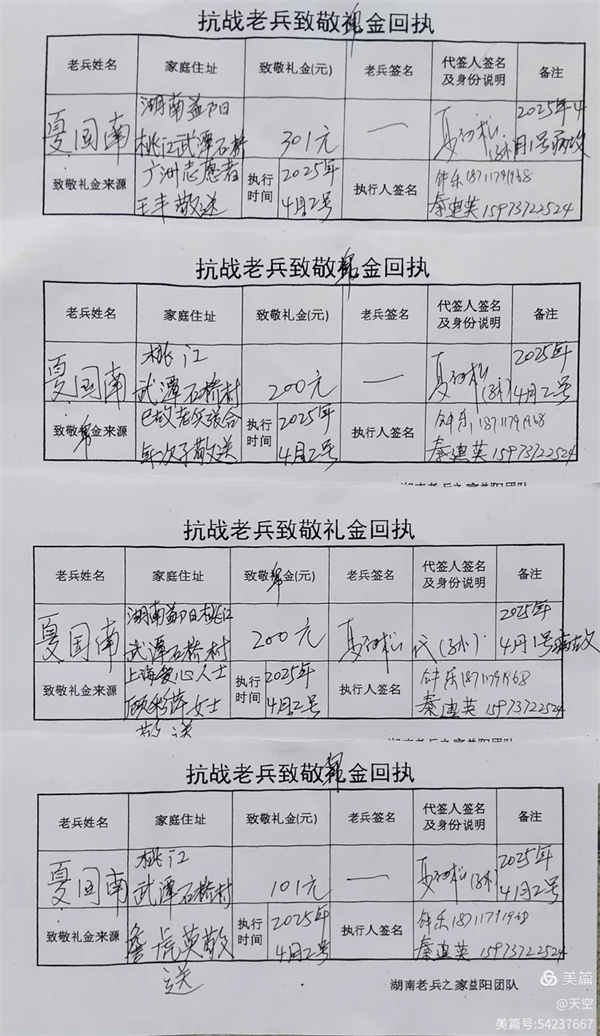 抗战老兵致敬礼金回执
老兵姓名 家庭住址 致敬礼金(元) 老兵签名 代签人签名及身份说明 备注
夏国南 湖南益阳桃江武潭石桥 301元 — 夏 (孙) 2025年4月1号病故
致敬礼金来源 广州志愿者王丰敬送 执行时间 2025年4月2号 执行人签名 钟乐 秦建英 15973722524
抗战老兵致敬金回执
老兵姓名 家庭住址 致敬礼金(元) 老兵签名 代签人签名及身份说明 备注
夏国南 桃江武潭石桥村 200元 — 夏 (孙) 2025年4月2号
致敬金来源 已故老兵张合年次子敬送 执行时间 2025年4月2号 执行人签名 钟乐 秦建英 15973722524
湖南老兵之家益阳团队
抗战老兵致敬礼金回执
老兵姓名 家庭住址 致敬金(元) 老兵签名 代签人签名及身份说明 备注
夏国南 湖南益阳桃江武潭石桥村 200元 夏 代(孙) 2025年4月1号病故
致敬礼金来源 上海爱心人士顾彩萍女士敬送 执行时间 2025年4月2号 执行人签名 钟乐 秦建英 15973722524
湖南老兵之家益阳团队
抗战老兵致敬金回执
老兵姓名 家庭住址 致敬礼金(元) 老兵签名 代签人签名及身份说明 备注
夏国南 桃江武潭石桥村 101元 — 夏 (孙) 2025年4月2号
致敬礼金来源 詹虎英敬送 执行时间 2025年4月2号 执行人签名 钟乐 秦建英 15973722524
湖南老兵之家益阳团队
美篇
@天空
美篇号:54237667